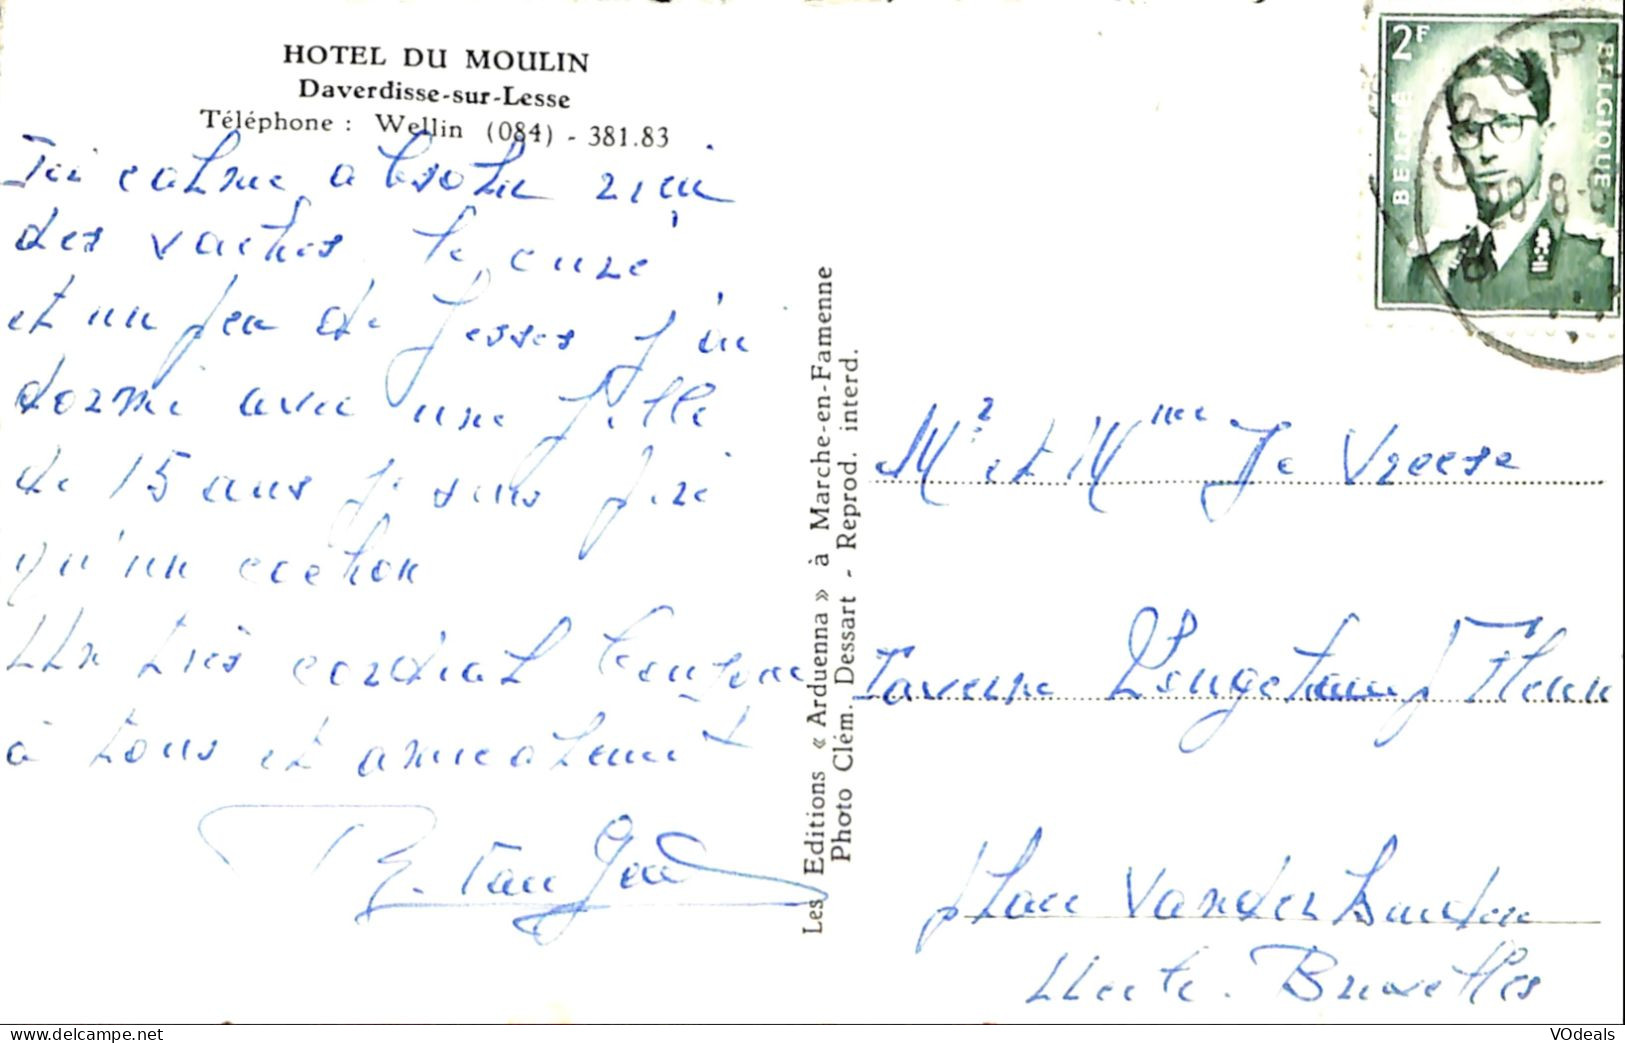 HOTEL DU MOULIN
Daverdisse-sur-Lesse
Téléphone : Wellin (084) - 381.83
Ici calme absolu rien
des vaches le curé
et un peu de Jesses j'ai
dormi avec une fille
de 15 ans je suis pire
qu'un cochon
Un très cordial bonjour
à tous et amicalement
Les Editions « Arduenna » à Marche-en-Famenne
Photo Clém. Dessart - Reprod. interd.
2F
BELGIË
BELGIQUE
Mr et Mme De Vreese
Taverne
Place Van der
Uccle. Bruxelles
VOdeals